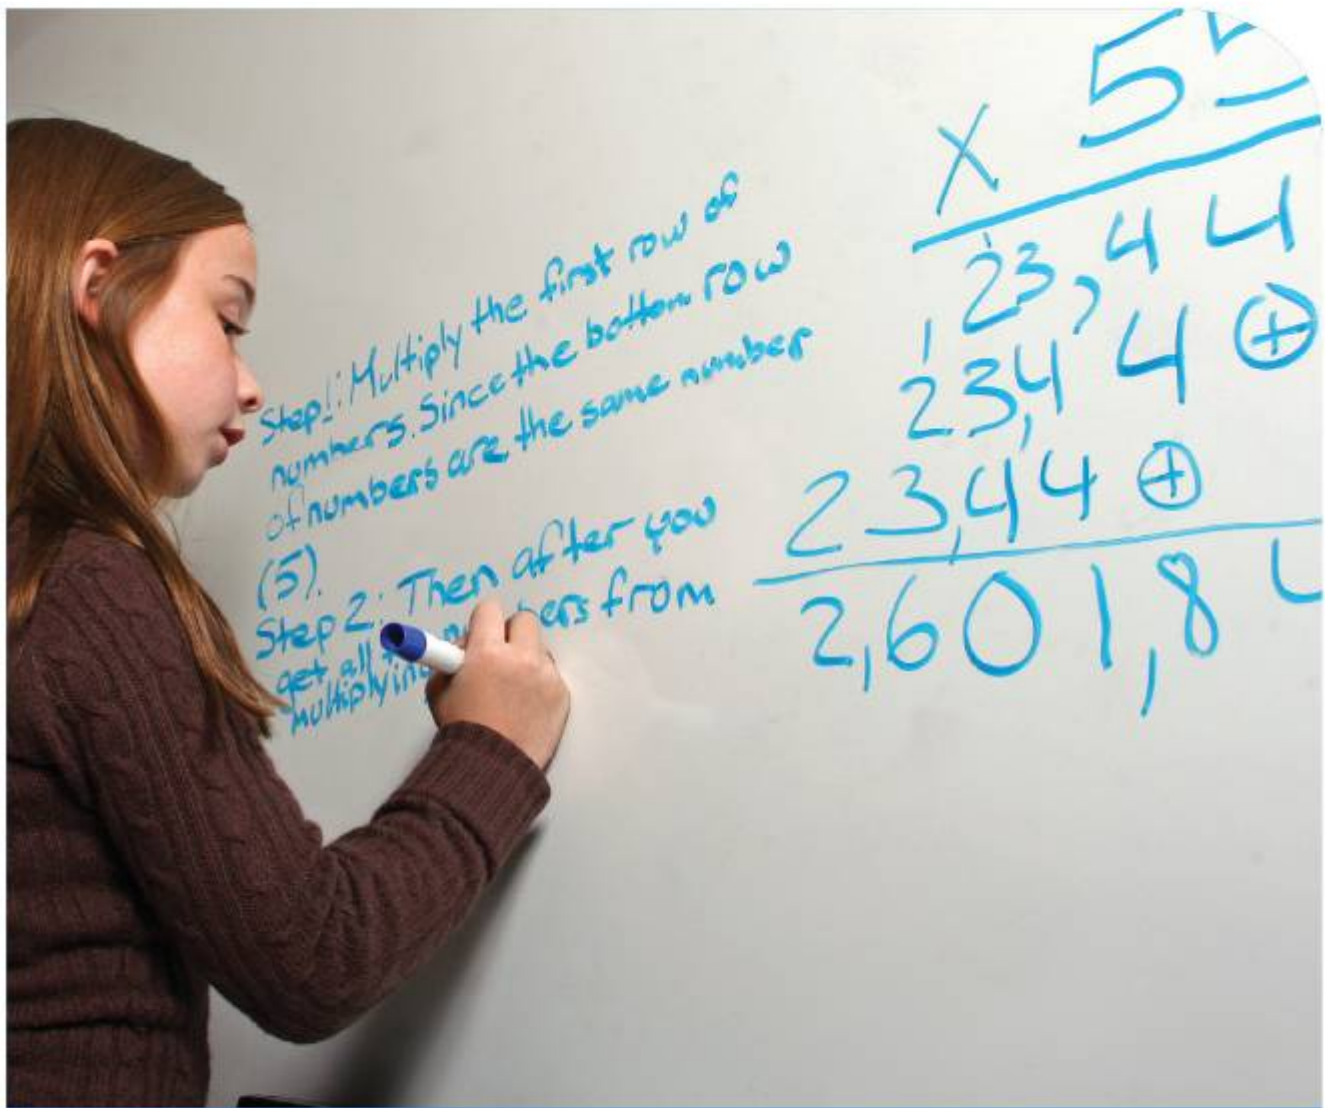 Step 1: Multiply the first row of
numbers. Since the bottom row
of numbers are the same number
(5).
Step 2: Then after you
get all from
multiplying
x 55
23,44
23,44 +
23,44 +
2,601,8